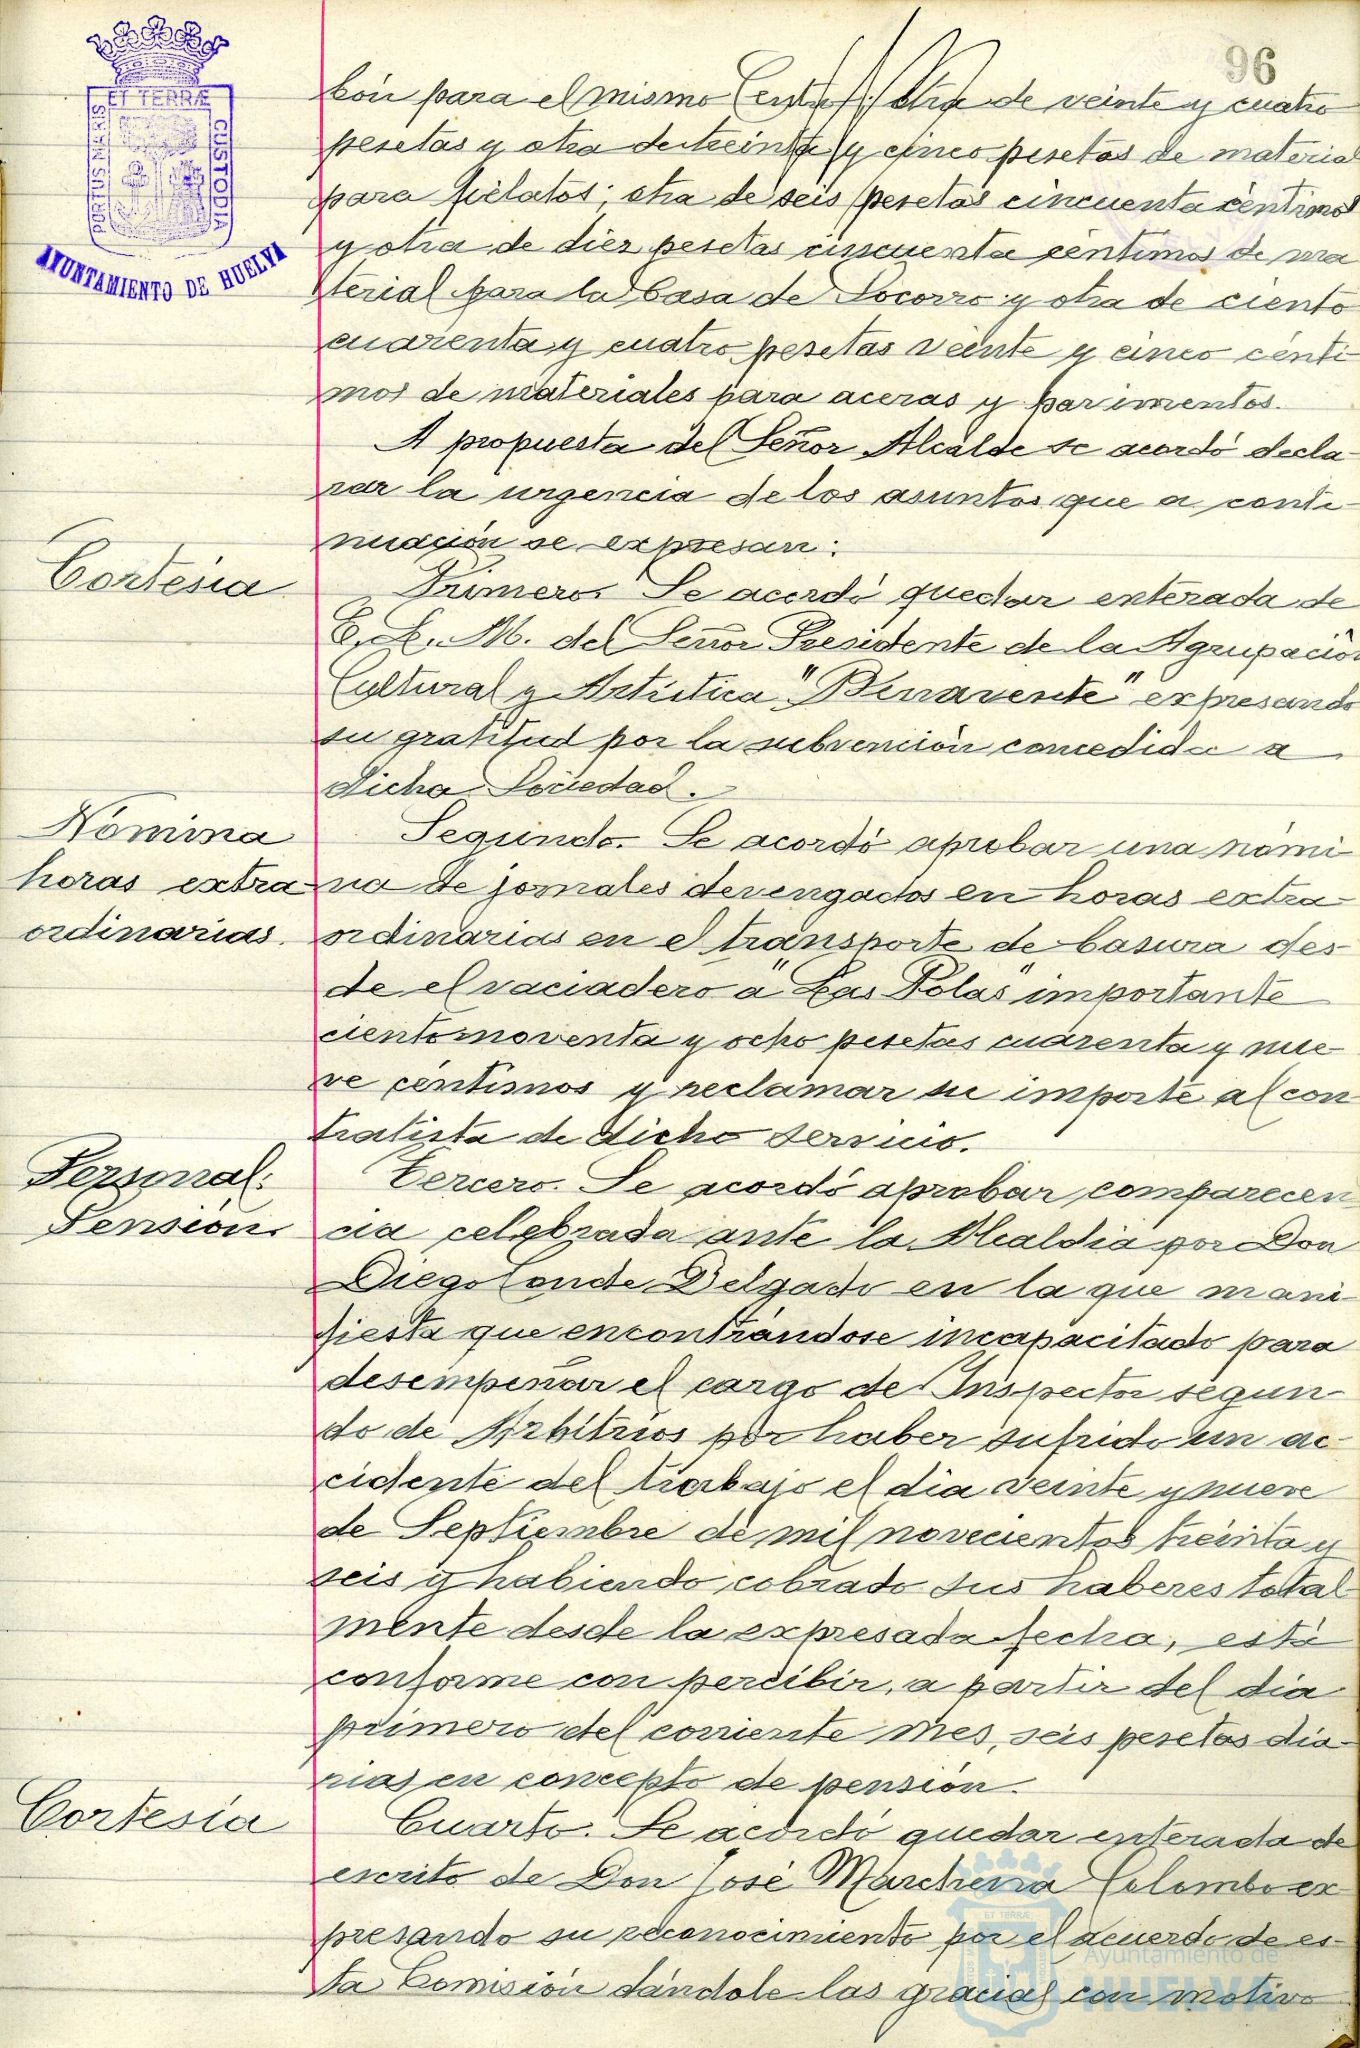 96
ET TERRÆ
PORTUS MARIS
CUSTODIA
AYUNTAMIENTO DE HUELVA
bón para el mismo Centro; otra de veinte y cuatro
pesetas y otra de treinta y cinco pesetas de material
para fielatos; otra de seis pesetas cincuenta céntimos
y otra de diez pesetas cincuenta céntimos de ma
terial para la Casa de Socorro y otra de ciento
cuarenta y cuatro pesetas veinte y cinco cénti-
mos de materiales para aceras y pavimentos.
A propuesta del Señor Alcalde se acordó decla-
rar la urgencia de los asuntos que a conti-
nuación se expresan:
Cortesia
Primero. Se acordó quedar enterada de
B. L. M. del Señor Presidente de la Agrupación
Cultural y Artística "Benavente" expresando
su gratitud por la subvención concedida a
dicha Sociedad.
Nómina
horas extra
ordinarias.
Segundo. Se acordó aprobar una nómi-
na de jornales devengados en horas extra-
ordinarias en el transporte de basura des-
de el vaciadero a "Las Polas" importante
ciento noventa y ocho pesetas cuarenta y nue-
ve céntimos y reclamar su importe al con
tratista de dicho servicio.
Personal:
Pensión.
Tercero. Se acordó aprobar comparecen
cia celebrada ante la Alcaldia por Don
Diego Conde Delgado en la que mani-
fiesta que encontrándose incapacitado para
desempeñar el cargo de Inspector segun-
do de Arbitrios por haber sufrido un ac-
cidente del trabajo el dia veinte y nueve
de Septiembre de mil novecientos treinta y
seis y habiendo cobrado sus haberes total
mente desde la expresada fecha, está
conforme con percibir, a partir del dia
primero del corriente mes, seis pesetas dia-
rias en concepto de pensión.
Cortesía
Cuarto. Se acordó quedar enterada de
escrito de Don José Marchena Colombo ex
presando su reconocimiento por el acuerdo de es-
ta Comisión dándole las gracias con motivo
Ayuntamiento de
HUELVA